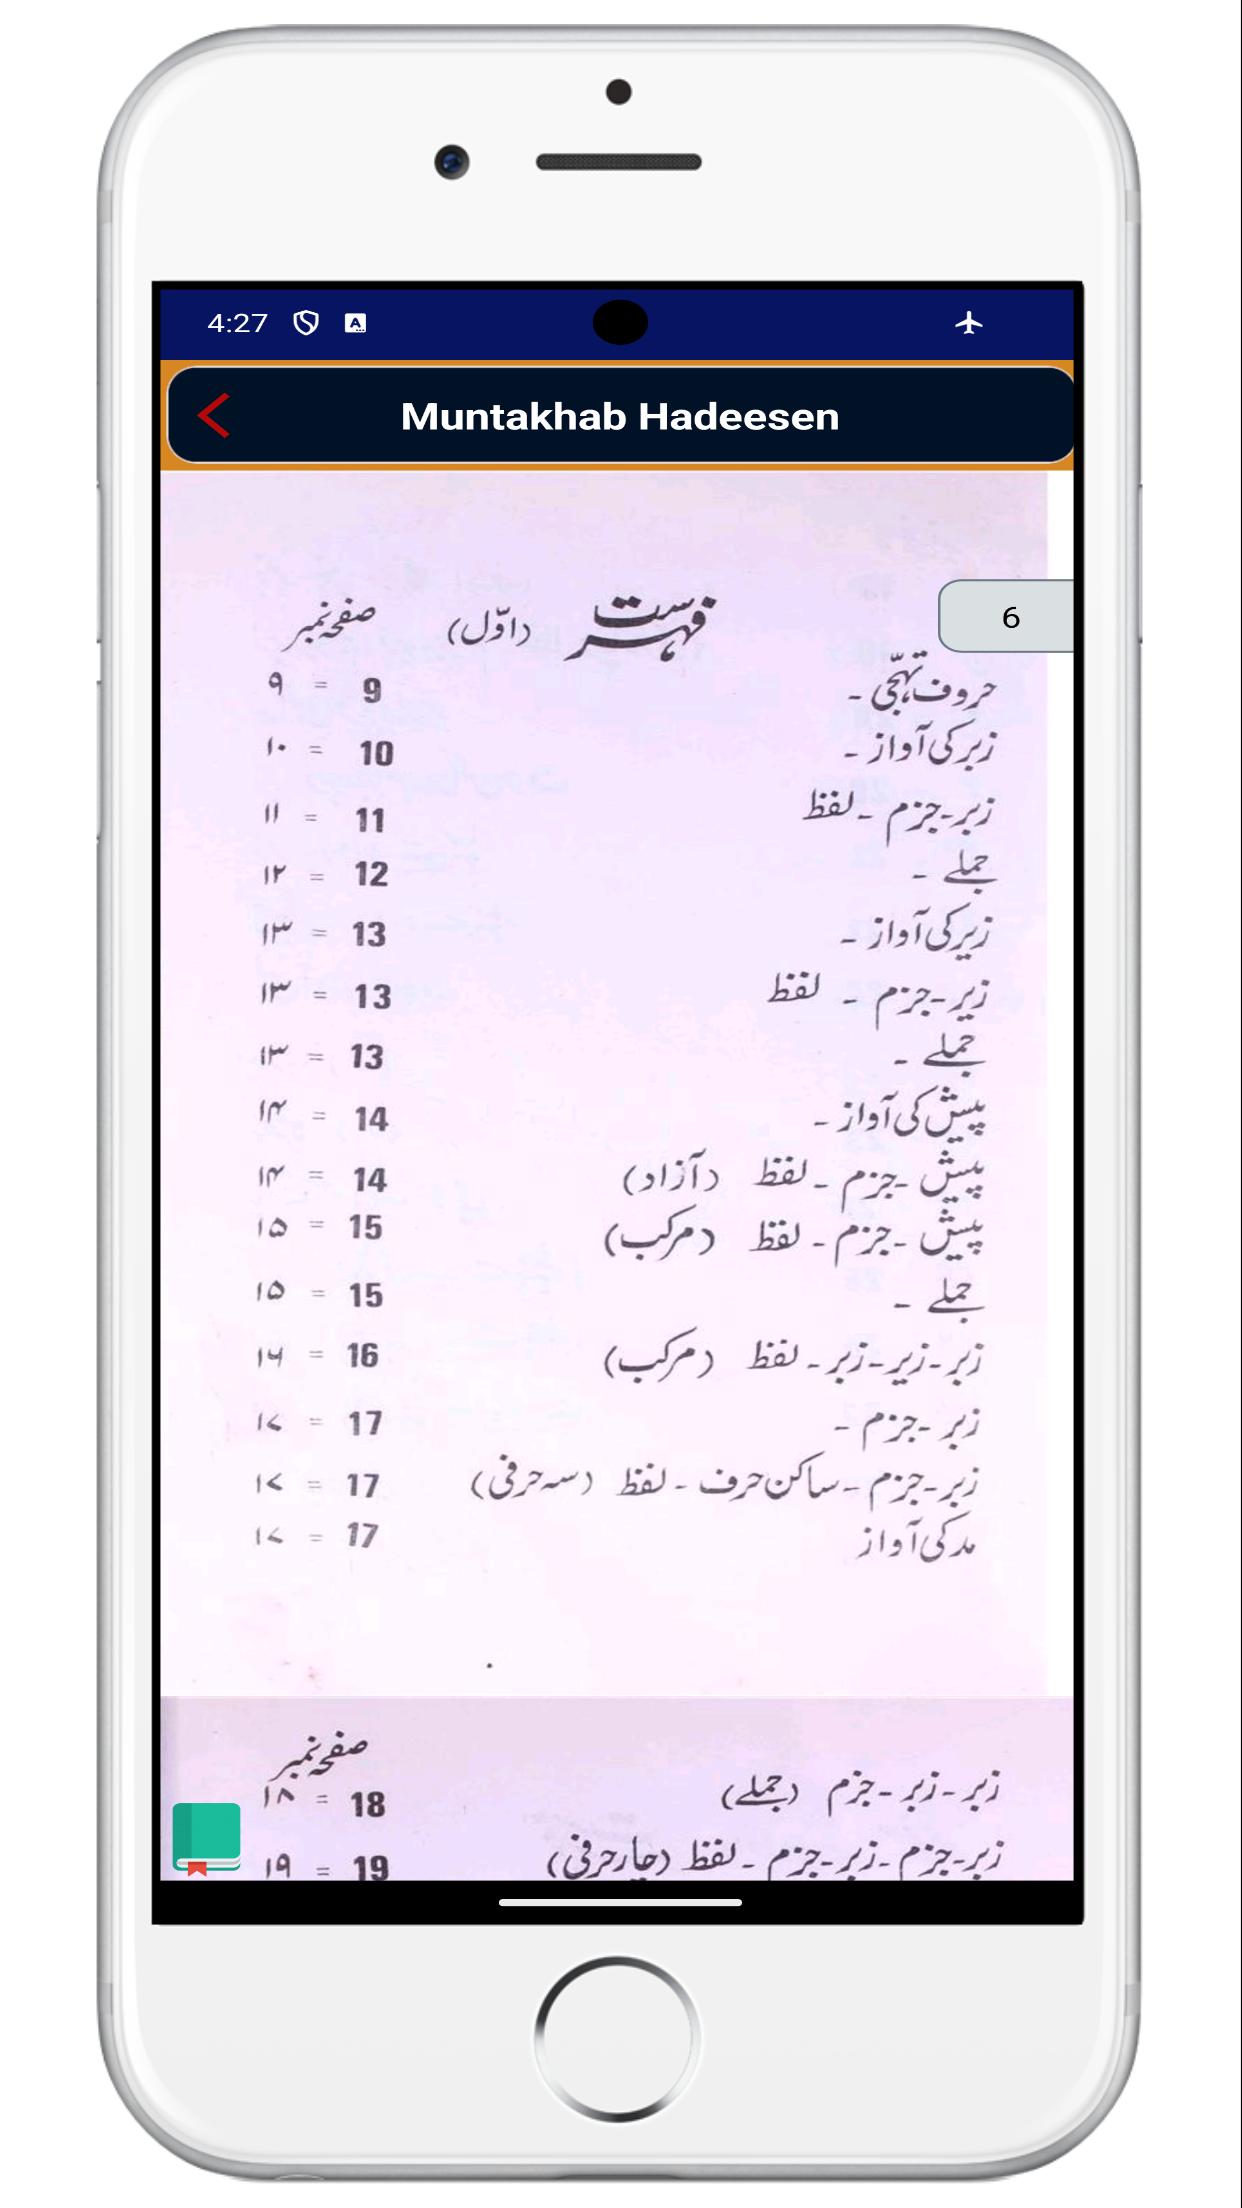 4:27
Muntakhab Hadeesen
6
فہرست (داوّل) صفحہ نمبر
حروف تہجّی ۔ 9 = ۹
زبر کی آواز ۔ 10 = ۱۰
زبر - جزم ۔ لفظ 11 = ۱۱
جملے ۔ 12 = ۱۲
زیر کی آواز ۔ 13 = ۱۳
زیر - جزم ۔ لفظ 13 = ۱۳
جملے ۔ 13 = ۱۳
پیش کی آواز ۔ 14 = ۱۴
پیش - جزم ۔ لفظ (آزاد) 14 = ۱۴
پیش - جزم ۔ لفظ (مرکب) 15 = ۱۵
جملے ۔ 15 = ۱۵
زبر - زیر - زبر ۔ لفظ (مرکب) 16 = ۱۶
زبر - جزم ۔ 17 = ۱۷
زبر - جزم - ساکن حرف ۔ لفظ (سہ حرفی) 17 = ۱۷
مد کی آواز 17 = ۱۷
صفحہ نمبر
زبر - زبر - جزم (جملے) 18 = ۱۸
زبر - جزم - زبر - جزم ۔ لفظ (چار حرفی) 19 = ۱۹